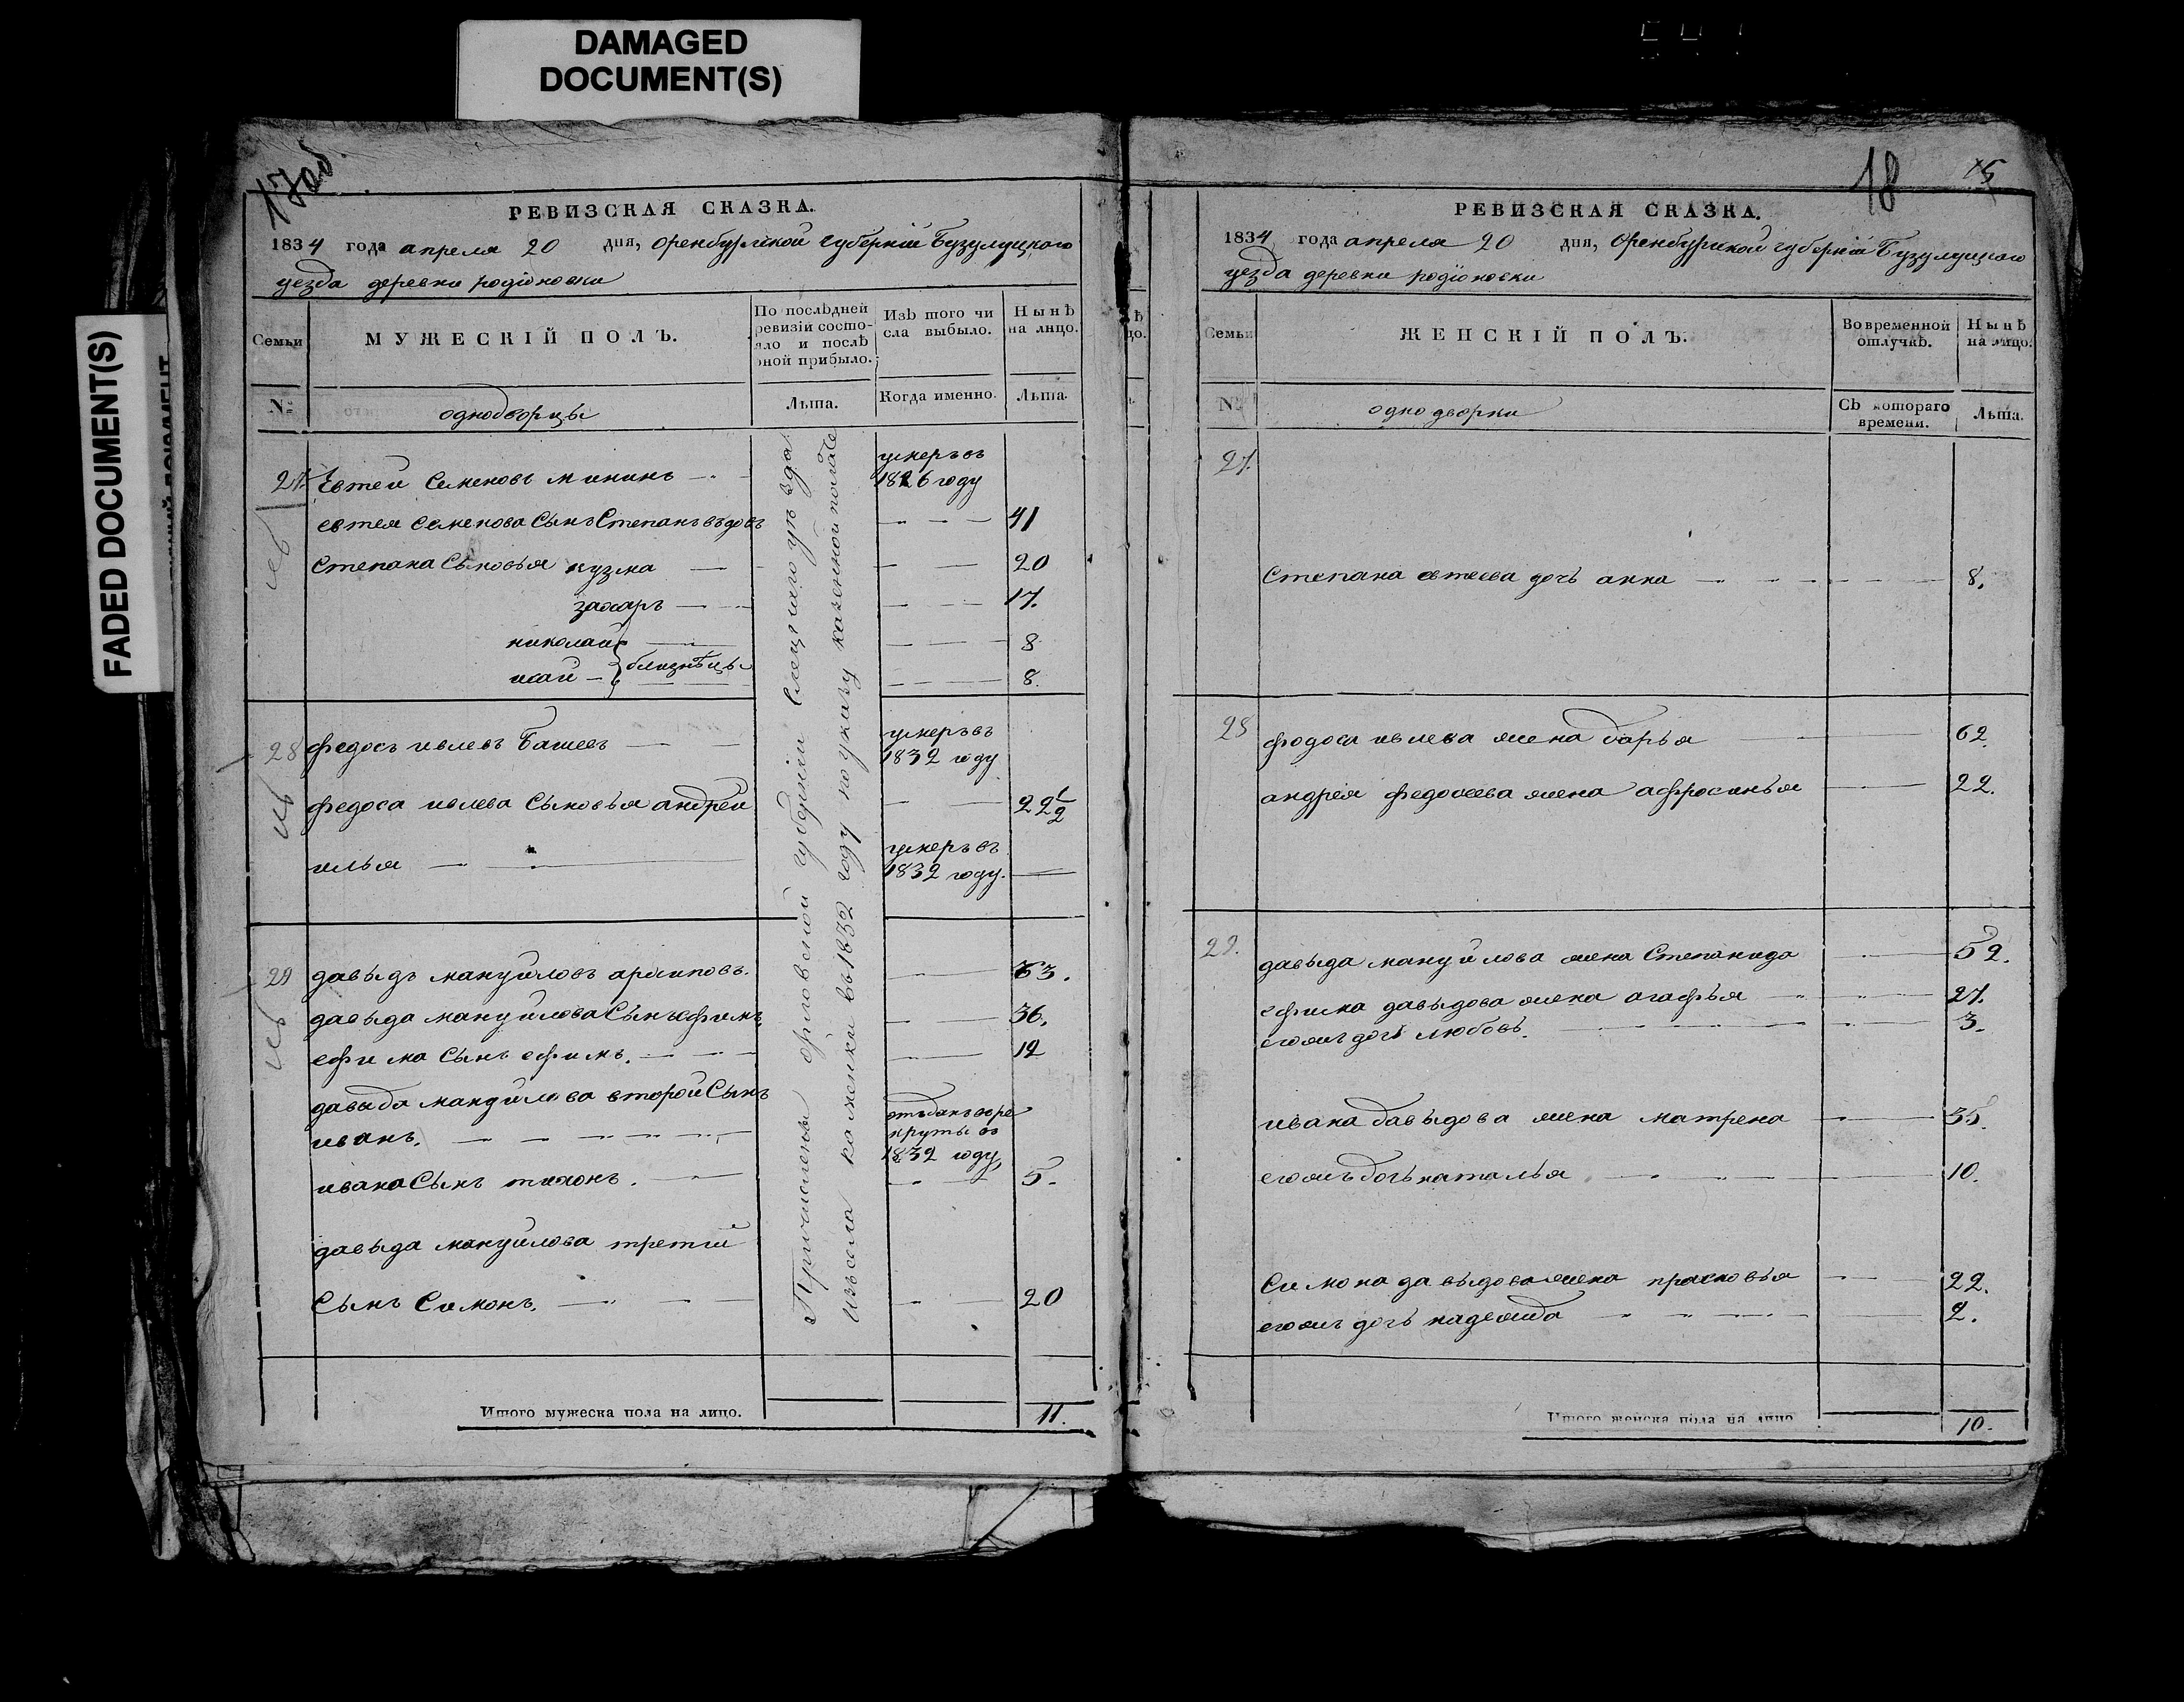 DAMAGED
DOCUMENT(S)
FADED DOCUMENT(S)
17 об
РЕВИЗСКАЯ СКАЗКА.
1834 года апреля 20 дня, Оренбургской губернiи Бузулуцкаго
уезда деревни родiоновки
Семьи
МУЖЕСКІЙ ПОЛЪ.
По послѣдней
ревизіи состо-
яло и послѣ
оной прибыло.
Изъ того чи
сла выбыло.
Нынѣ
на лицо.
№
однодворцы
Лѣта.
Когда именно.
Лѣта.
27 Евтей Семеновъ мининъ
умеръ въ
1826 году
евтея Семенова Сынъ Степанъ вдовъ 41
Степана Сыновья кузма 20
захаръ 17.
николай 8
исай близнѣцы 8.
28 федосъ ивлевъ
умеръ въ
1832 году
федоса ивлева Сыновья андрей 22 1/2
илья
умеръ въ
1832 году.
29 давыдъ мануйловъ архиповъ. 53.
давыда мануйлова Сынъ ефимъ. 36.
ефима Сынъ ефимъ. 12
давыда мануйлова второй Сынъ
иванъ.
отъданъ въ ре
круты въ
1832 году,
ивана Сынъ тихонъ. 5.
давыда мануйлова третiй
Сынъ Симонъ. 20
Причислены орловской губернiи Елецкаго уѣзда
изъ села каменки въ 1832 году по указу казенной палаты
Итого мужеска пола на лицо. 11.
18
15
РЕВИЗСКАЯ СКАЗКА.
1834 года апреля 20 дня, Оренбургской губернiи Бузулуцкаго
уезда деревни родiоновки
Семьи
ЖЕНСКІЙ ПОЛЪ.
Во временной
отлучкѣ.
Нынѣ
на лицо.
№
однодворки
Съ котораго
времени.
Лѣта.
27.
Степана евтеева дочь анна 8.
28 федоса ивлева жена дарья 62.
андрея федосеева жена афросинья 22.
29. давыда мануйлова жена Степанида 52.
ефима давыдова жена агафья 27.
егожъ дочь любовь. 3.
ивана давыдова жена матрена 35.
егожъ дочь наталья 10.
Симона давыдова жена прасковья 22.
егожъ дочь надежда 2.
Итого женска пола на лицо 10.